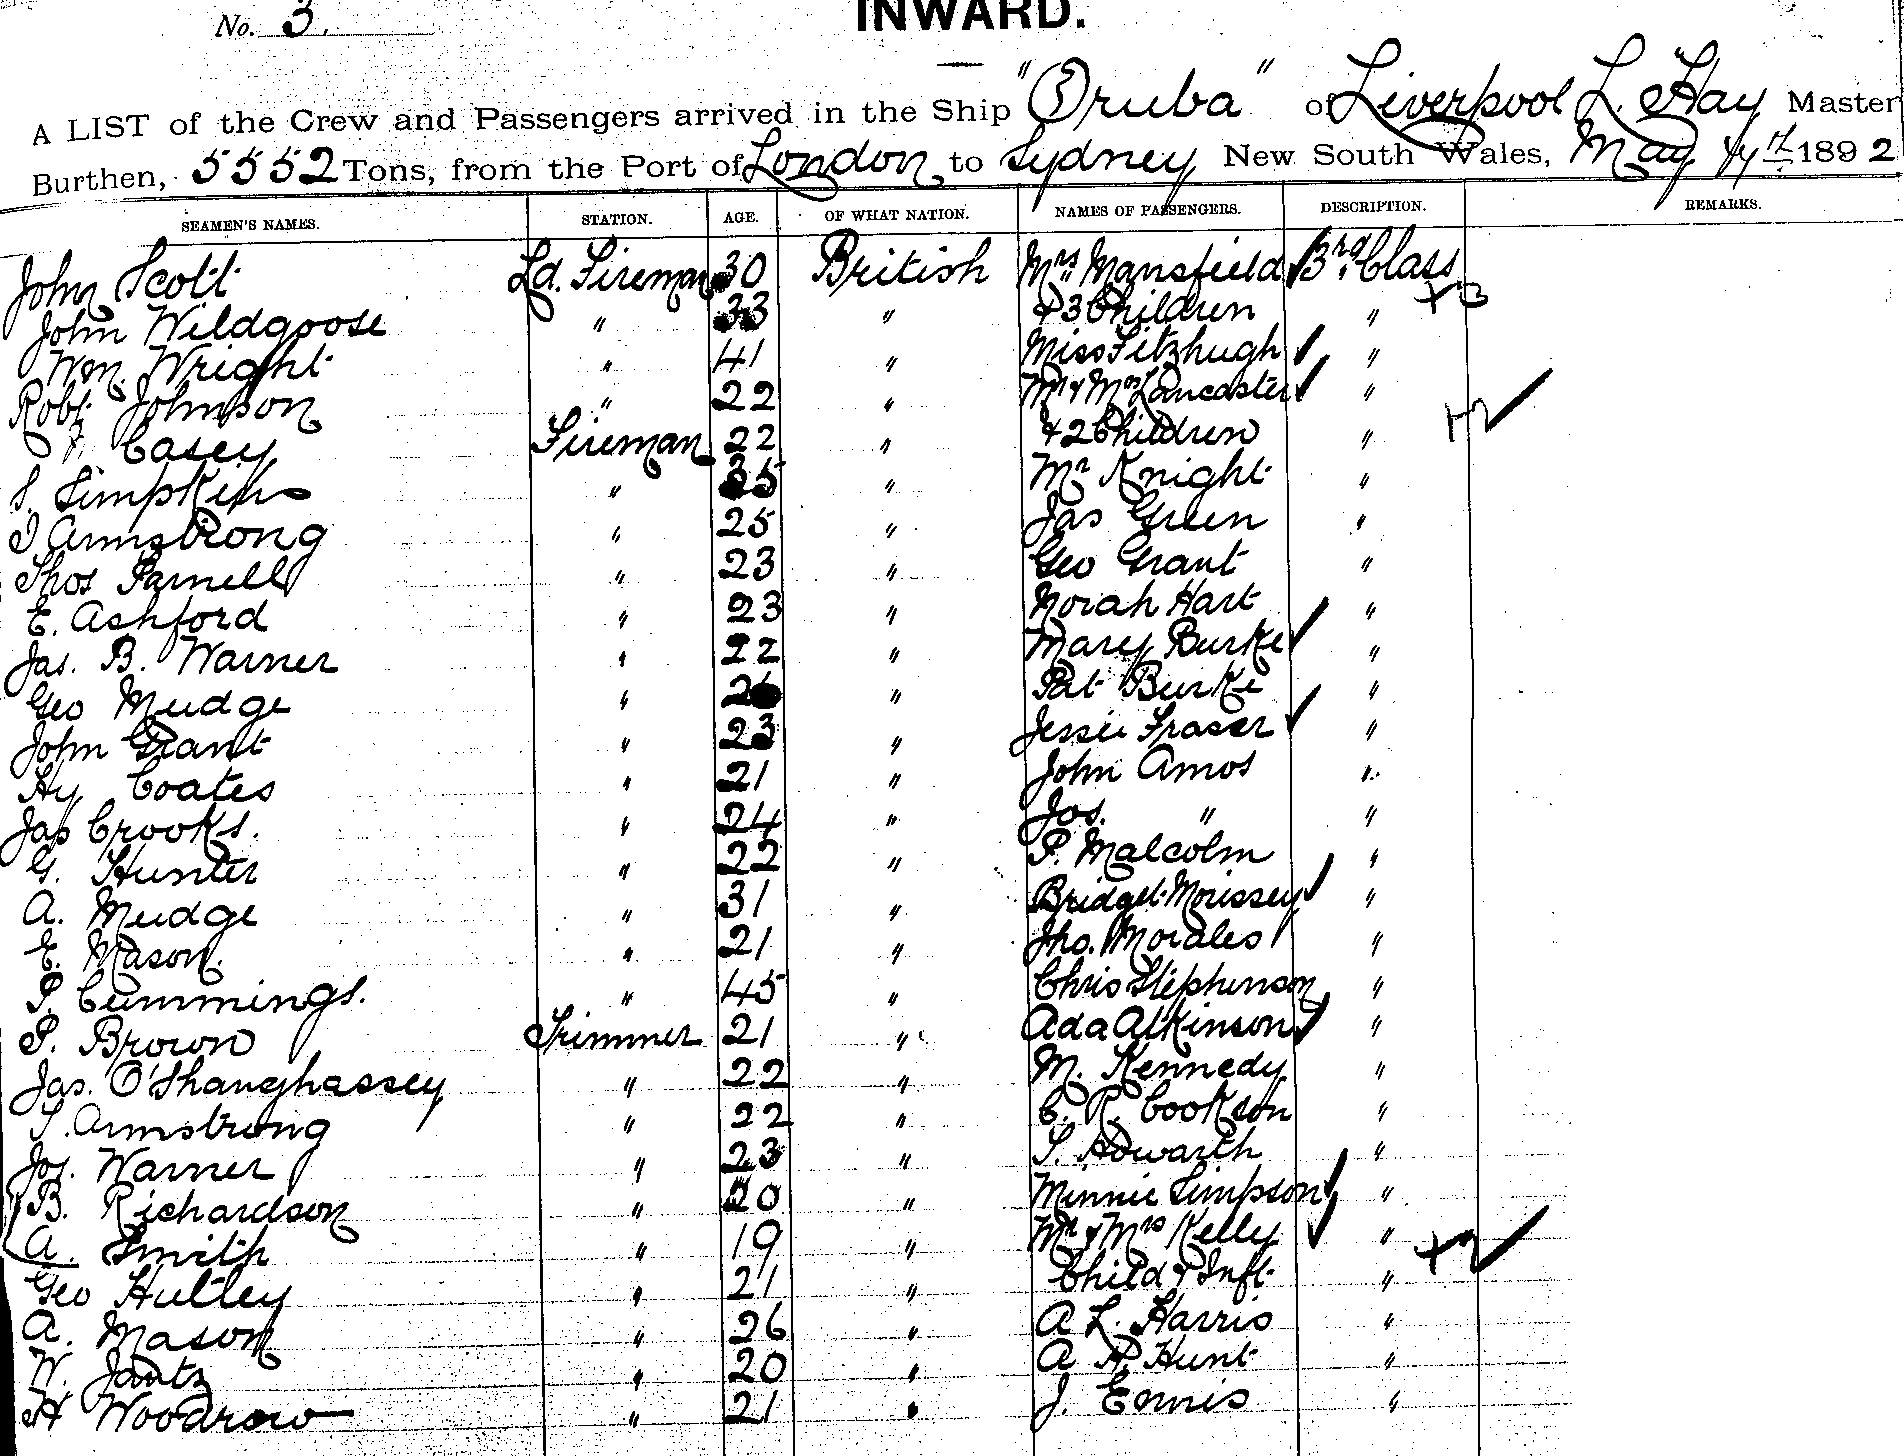 No. 3.
INWARD.
A LIST of the Crew and Passengers arrived in the Ship "Oruba" of Liverpool L. Hay Master
Burthen, 5552 Tons, from the Port of London to Sydney New South Wales, May 1892
SEAMEN'S NAMES. STATION. AGE. OF WHAT NATION. NAMES OF PASSENGERS. DESCRIPTION. REMARKS.
John Scott Ld. Fireman 30 British Mrs Mansfield 3rd Class
John Wildgoose " 33 " & 3 Children " +3
Wm. Wright " 41 " Miss Fitzhugh "
Robt Johnson " 22 " Mr & Mrs Lancaster "
Casey Fireman 22 " & 2 Children " +2
S. Simpkins " 35 " Mr Knight "
J Armstrong " 25 " Jas Green "
Thos Parnell " 23 " Geo Grant "
E. Ashford " 23 " Norah Hart "
Jas. B. Warner " 22 " Mary Burke "
Geo Mudge " " Pat Burke "
John Grant " 23 " Jessie Fraser "
Hy Coates " 21 " John Amos "
Jas Crooks. " 24 " Jos. " "
G. Hunter " 22 " P. Malcolm "
A. Mudge " 31 " Bridget Morissey "
E. Mason. " 21 " Jho. Morales "
P. Cummings. " 45 " Chris Stephenson "
P. Brown Trimmer 21 " Ada Atkinson "
Jas. O'Shanghassey " 22 " M. Kennedy "
Armstrong " 22 " C. R. Cookson "
Jos. Warner " 23 " S. Howarth "
B. Richardson " 20 " Minnie Simpson "
A. Smith " 19 " Mr & Mrs Kelly " +2
Geo Hulley " 21 " Child & Inft. "
A. Mason " 26 " A L. Harris "
W. Jantz " 20 " A H. Hunt "
H Woodrow " 21 " J. Ennis "